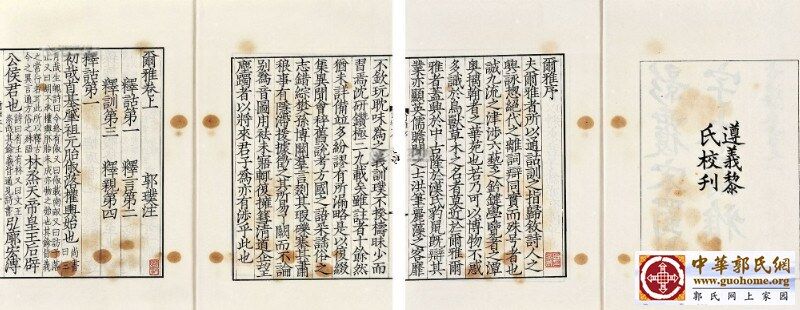 遵義黎
氏校刊
爾雅序
夫爾雅者所以通詁訓之指歸叙詩人之
興詠揔絶代之離詞辯同實而殊号者也
誠九流之津涉六藝之鈐鍵學覽者之潭
奥摛翰者之華苑也若乃可以博物不惑
多識於鳥獸草木之名者莫近於爾雅爾
雅者蓋興於中古隆於漢氏豹鼠既辯其
業亦顯英儒贍聞之士洪筆麗藻之客靡
不欽玩耽味為之義訓璞不揆檮昧少而
習焉沈研鑽極二九載矣雖註者十餘然
猶未詳備並多紛謬有所漏略是以復綴
集異聞會稡舊説考方國之語采謡俗之
志錯綜樊孫博關羣言剟其瑕礫搴其蕭
稂事有隱滯援據徵之其所易了闕而不論
別為音圖用祛未寤輒復擁篲清道企望
塵躅者以將來君子為亦有涉乎此也
爾雅卷上 郭璞注
釋詁第一 釋言第二
釋訓第三 釋親第四
釋詁第一
初哉首基肇祖元胎俶落權輿始也 尚書曰三
林烝天帝皇王后辟
公侯君也 弘廓宏溥
中華郭氏網
www.guohome.org
郭氏网上家园